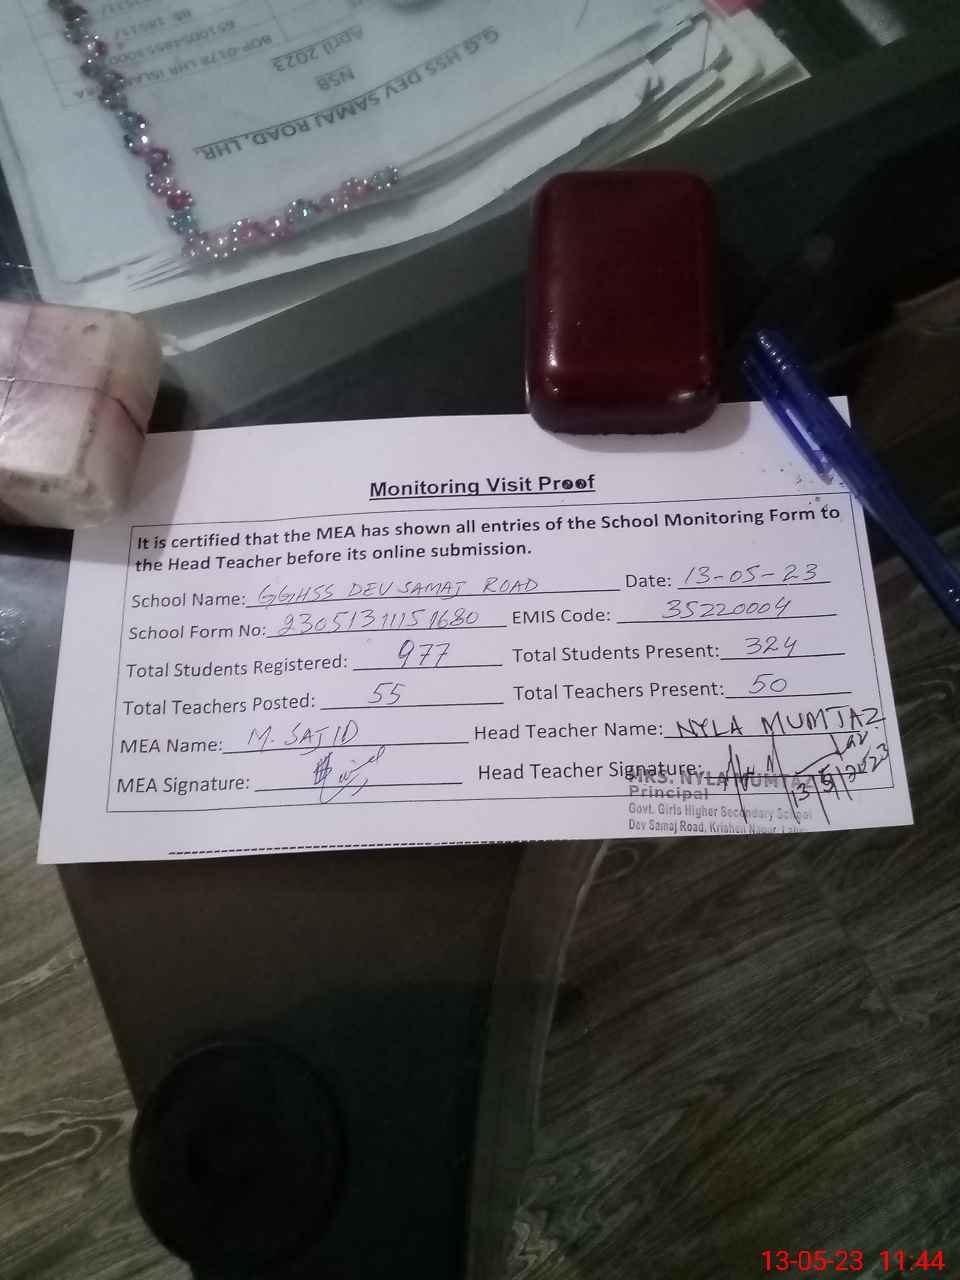 G.G HSS DEV SAMAJ ROAD, LHR.
NSB
April 2023
Monitoring Visit Proof
It is certified that the MEA has shown all entries of the School Monitoring Form to
the Head Teacher before its online submission.
School Name: GGHSS DEV SAMAJ ROAD Date: 13-05-23
School Form No: EMIS Code: 35220004
Total Students Registered: 977 Total Students Present: 324
Total Teachers Posted: 55 Total Teachers Present: 50
MEA Name: M. SAJID Head Teacher Name: NYLA MUMTAZ
MEA Signature: Head Teacher Signature:
13/5/2023
MRS. NYLA MUMTAZ
Principal
Govt. Girls Higher Secondary School
Dev Samaj Road, Krishen Nagar,
13-05-23 11:44